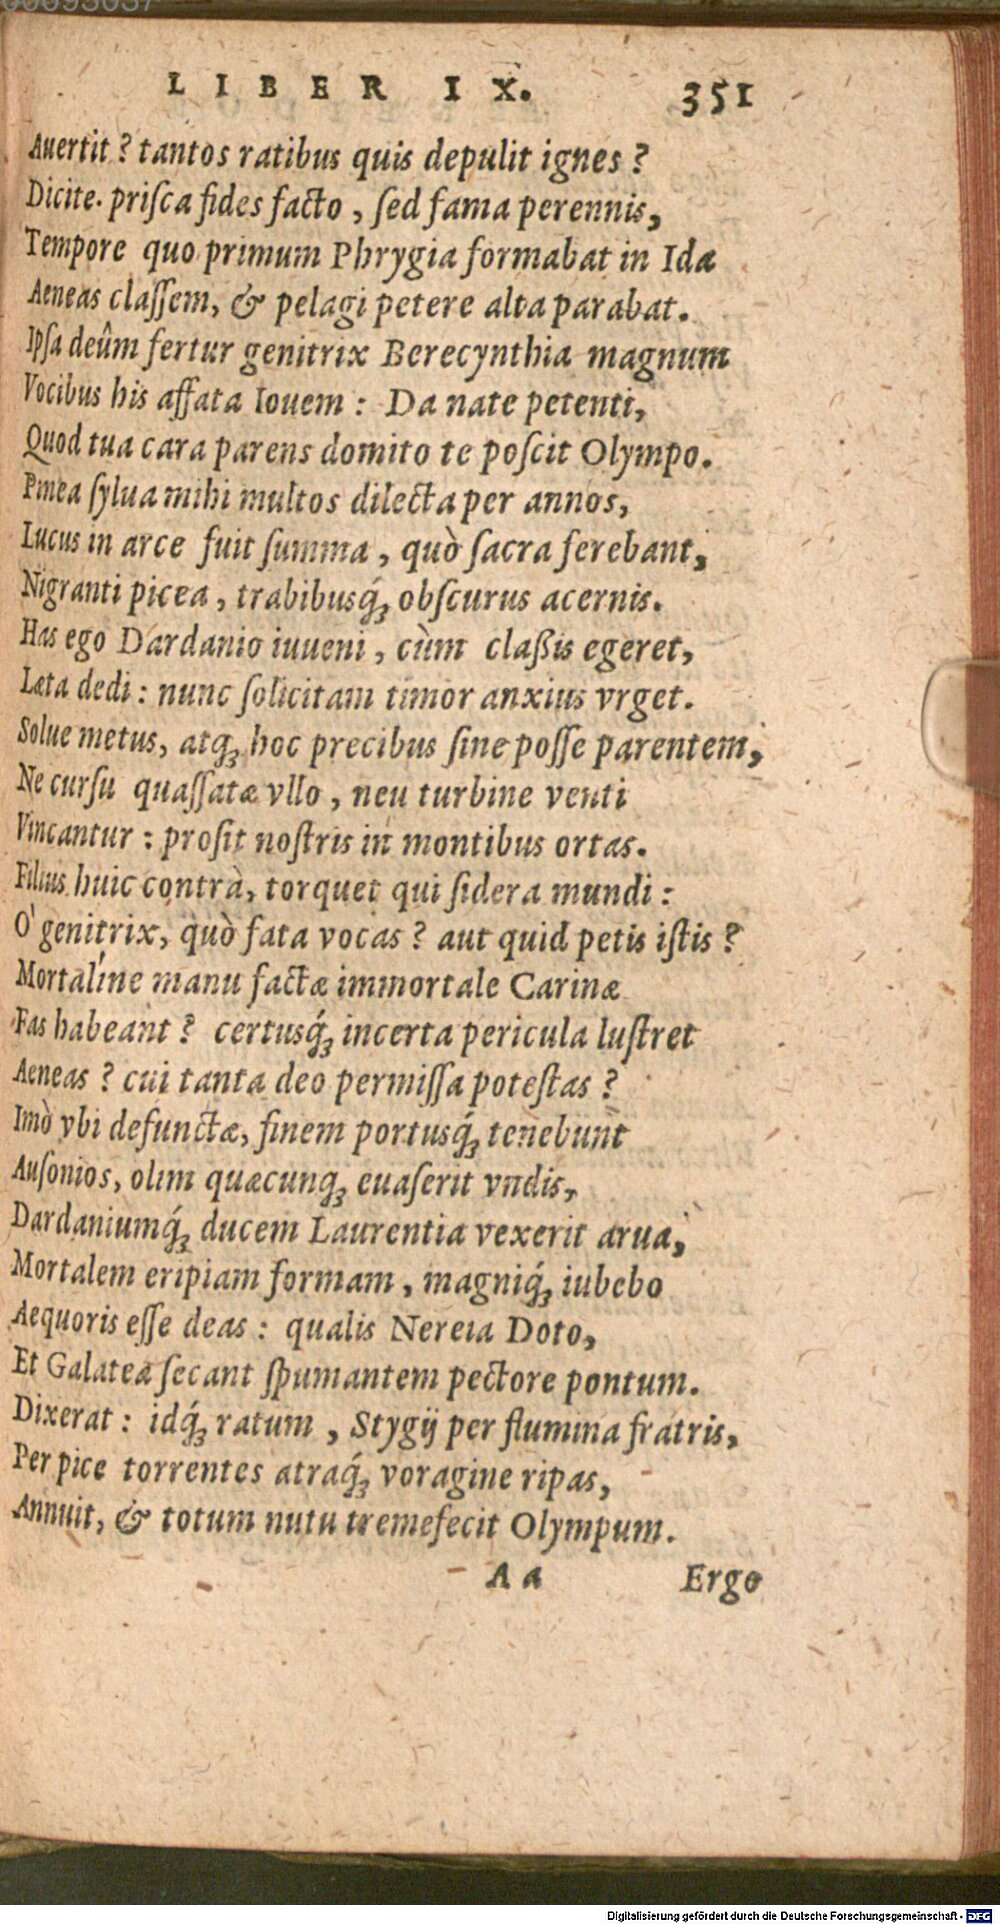 LIBER IX. 351
Auertit? tantos ratibus quis depulit ignes?
Dicite. prisca fides facto, sed fama perennis,
Tempore quo primum Phrygia formabat in Ida
Aeneas classem, & pelagi petere alta parabat.
Ipsa deûm fertur genitrix Berecynthia magnum
Vocibus his affata Iouem: Da nate petenti,
Quod tua cara parens domito te poscit Olympo.
Pinea sylua mihi multos dilecta per annos,
Lucus in arce fuit summa, quò sacra ferebant,
Nigranti picea, trabibusq́; obscurus acernis.
Has ego Dardanio iuueni, cùm claßis egeret,
Læta dedi: nunc solicitam timor anxius vrget.
Solue metus, atq; hoc precibus sine posse parentem,
Ne cursu quassatæ vllo, neu turbine venti
Vincantur: prosit nostris in montibus ortas.
Filius huic contrà, torquet qui sidera mundi:
O' genitrix, quò fata vocas? aut quid petis istis?
Mortalíne manu factæ immortale Carinæ
Fas habeant? certusq́; incerta pericula lustret
Aeneas? cui tanta deo permissa potestas?
Imò vbi defunctæ, finem portusq́; tenebunt
Ausonios, olim quæcunq; euaserit vndis,
Dardaniumq́; ducem Laurentia vexerit arua,
Mortalem eripiam formam, magniq́; iubebo
Aequoris esse deas: qualis Nereia Doto,
Et Galatea secant spumantem pectore pontum.
Dixerat: idq́; ratum, Stygij per flumina fratris,
Per pice torrentes atraq́; voragine ripas,
Annuit, & totum nutu tremefecit Olympum.
A a Ergo
Digitalisierung gefördert durch die Deutsche Forschungsgemeinschaft - DFG